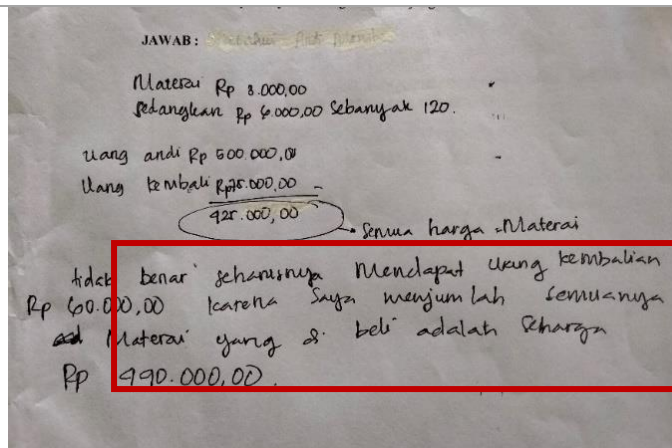 JAWAB :
Materai Rp 3.000,00
sedangkan Rp 6.000,00 Sebanyak 120.
uang andi Rp 500.000,00
Uang kembali Rp 75.000,00 -
425.000,00
Semua harga Materai
tidak benar seharusnya Mendapat uang kembalian
Rp 60.000,00 karena saya menjumlah semuanya
Materai yang di beli adalah seharga
Rp 440.000,00.